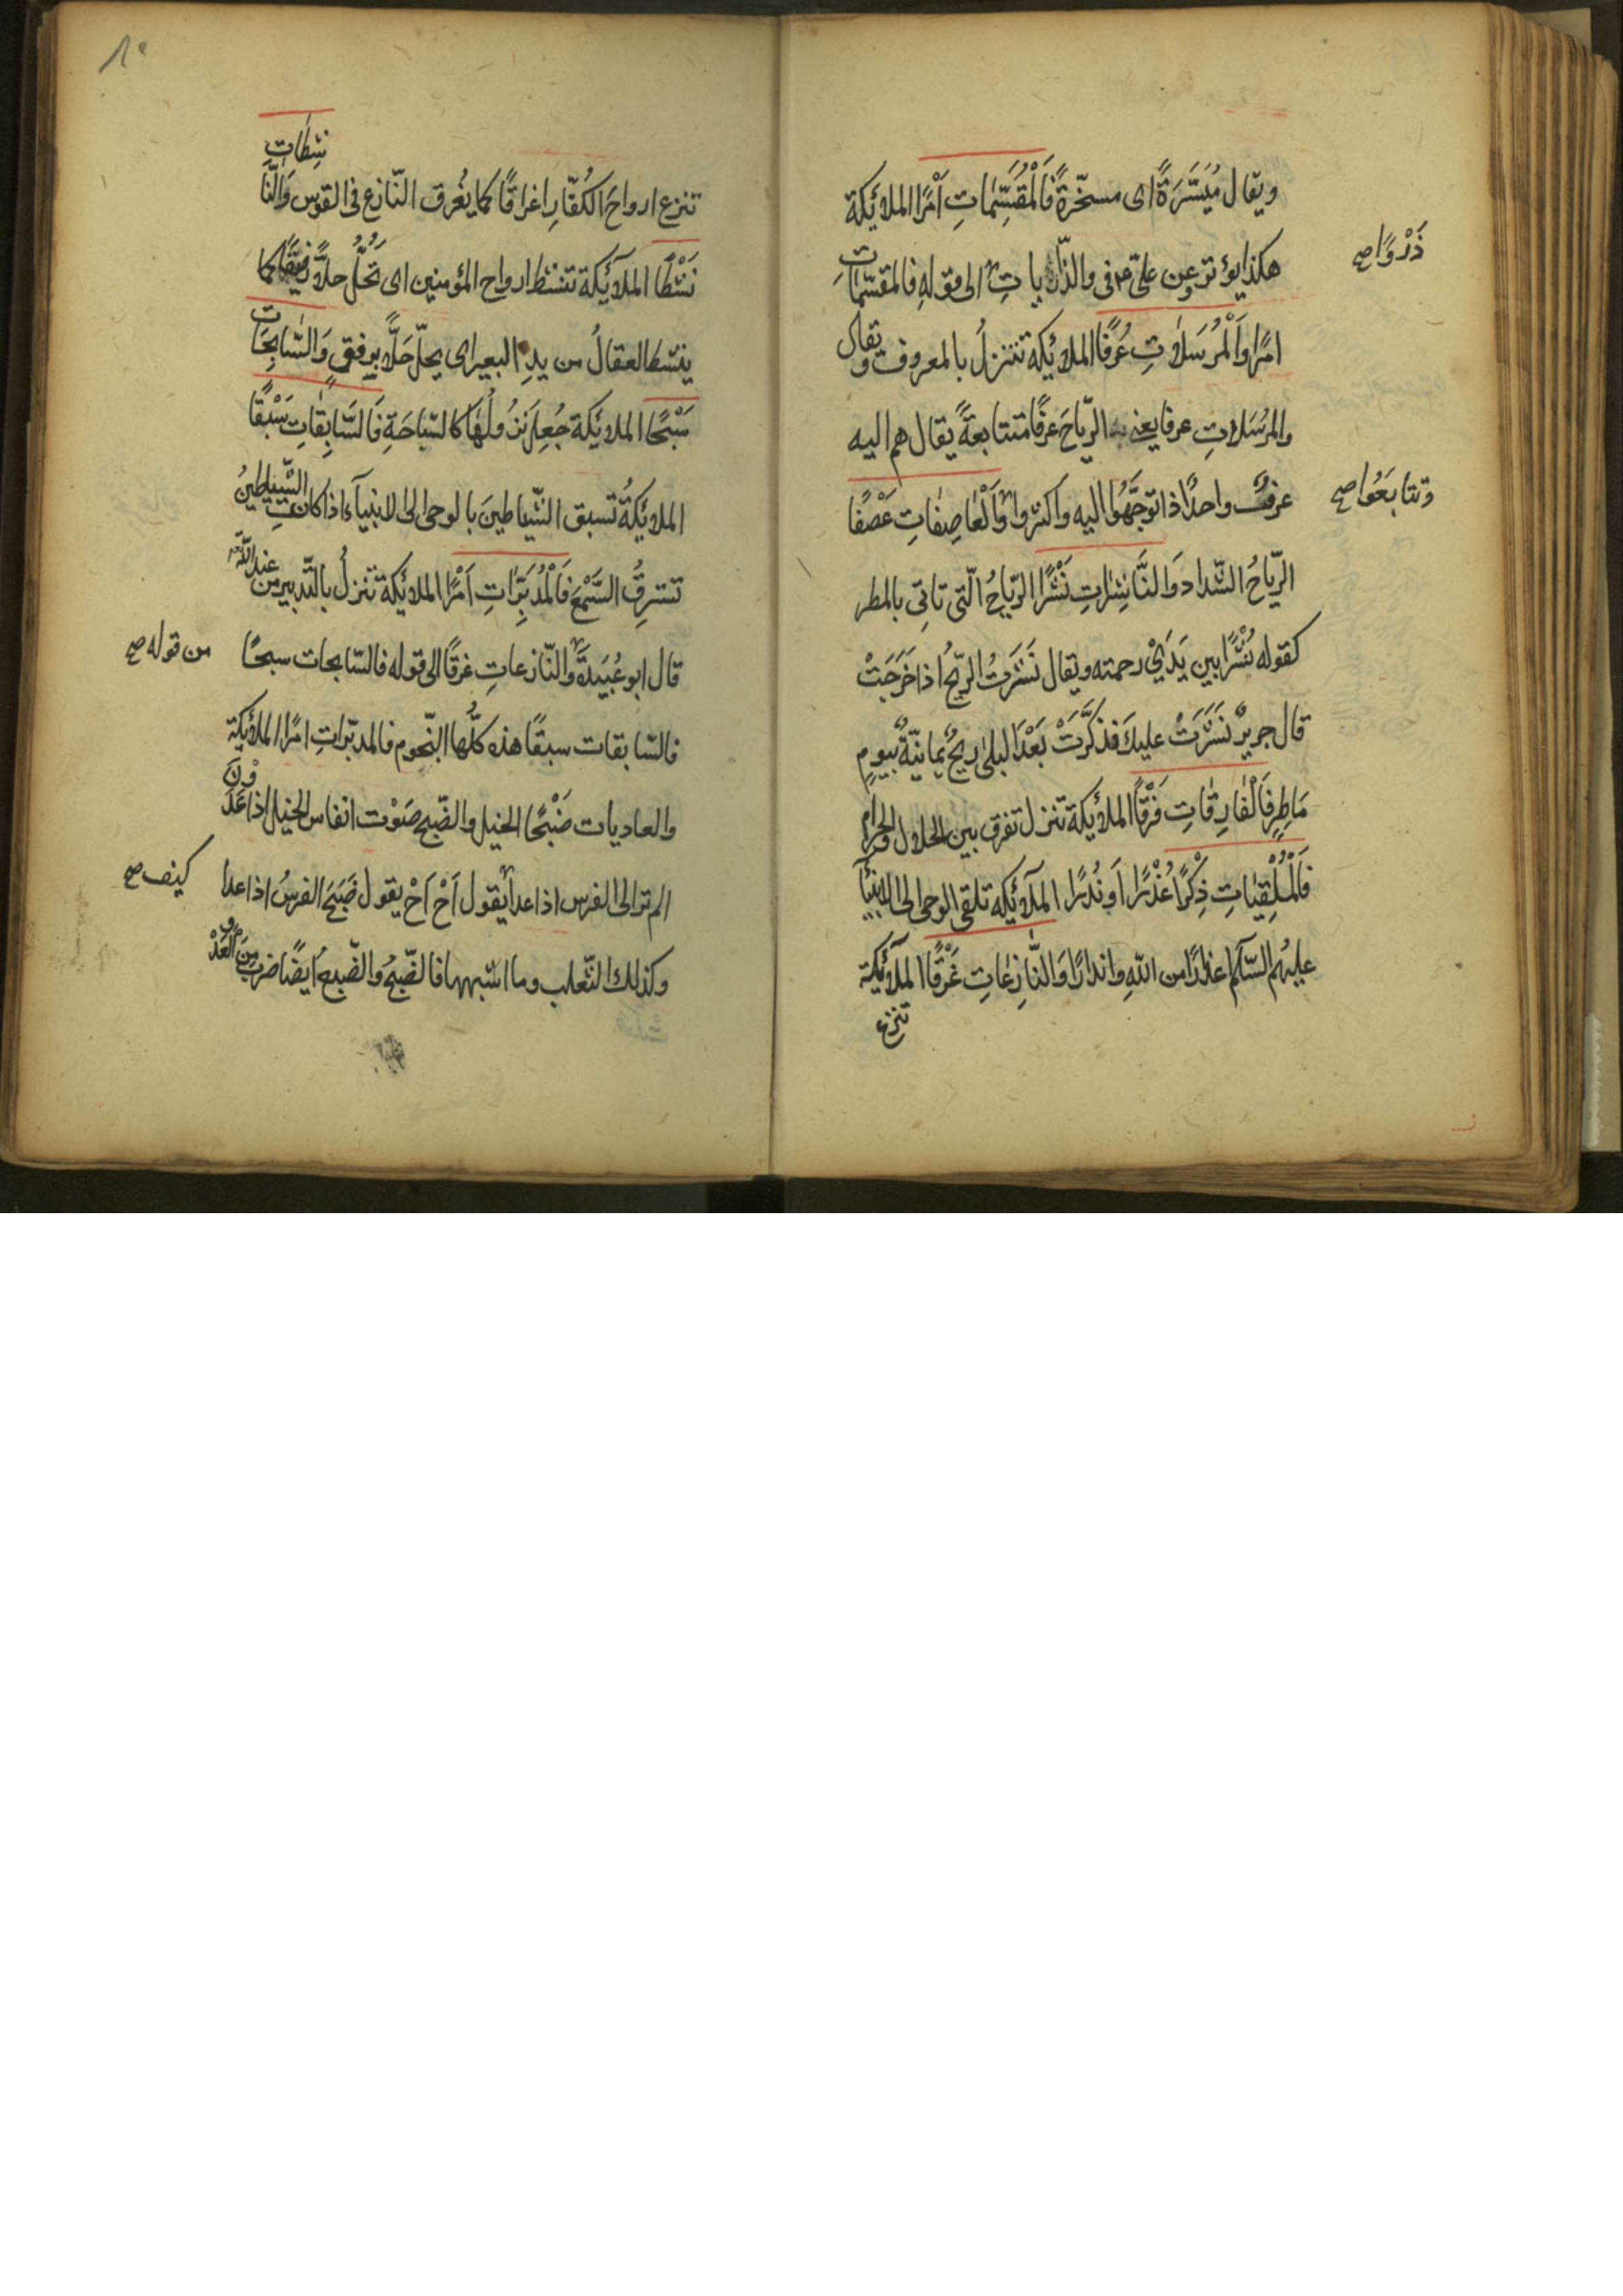 ويقال مُيَسَّرَةً اى مسخّرةً فَالْمُقَسِّمَاتِ اَمْرًا الملائكة
هكذا يؤثر عن علىّ فى والذّاريات الى قوله فالمقسّمات
ذَرْوًا صح
امرًا وَالْمُرْسَلَاتِ عُرْفًا الملائكة تنزلُ بالمعروف ويقال
والمرْسَلات عرفا يعنى به الرّياحَ عرفًا متتابعةً يقال هم اليه
عرفٌ واحدٌ اذا توجَّهُوا اليه واكثروا وَالْعَاصِفَاتِ عَصْفًا
وتتابَعُوا صح
الرّياحُ الشّداد وَالنَّاشِرَاتِ نَشْرًا الرّياحُ الّتى تاتى بالمطر
كقوله نُشْرًا بين يَدَىْ رحمته ويقال نَشَرَتْ الرّيحُ اذا خَرَجَتْ
قال جريرٌ نَشَرَتْ عليكَ فذكَّرَتْ بَعْدَ البلى ريحٌ يمانيّةٌ بيومٍ
مَاطِرِ فَالْفَارِقَاتِ فَرْقًا الملائكة تنزل تفرق بين الحلال والحرام
فَالْمُلْقِيَاتِ ذِكْرًا عُذْرًا اَوْ نُذْرًا الملآئكة تلقى الوحى الى الانبيآ
عليهُم السّلام اعذارًا من اللّهِ وانذارًا وَالنَّازِعَاتِ غَرْقًا الملآئكة
تنزع
١٠
تنزع ارواحَ الكُفّارِ اغراقًا كما يُغْرق النّازع فى القوس وَالنَّاشِطَاتِ
نَشْطًا الملآئكة تنشط ارواح المؤمنين اى تحُلُّ حلاًّ رفيقًا كما
ينشط العقالُ من يدِ البعير اى يحلّ حَلًّا برفقٍ وَالسَّابِحَاتِ
سَبْحًا الملائكة جُعِلَ نزُولُهَا كالسّباحَةِ فَالسَّابِقَاتِ سَبْقًا
الملائكةُ تسبق الشّياطينَ بالوحى الى الانبيآء اذا كانت الشّيٰطينُ
تسترِقُ السَّمْعَ فَالْمُدَبِّرَاتِ اَمْرًا الملائكة تنزلُ بالتّدبير من عند اللّه
قال ابو عُبَيدةَ والنّازعاتِ غرقًا الى قوله فالسّابحات سبحًا
من قوله صح
فالسّابقات سبقًا هذه كلُّها النّجوم فالمدبّراتِ امرًا الملائكة
والعاديات ضَبْحًا الخيل والضّبح صَوْت انفاس الخيل اذا عَدَوْنَ
الم تر الى الفرس اذا عدا يقول اَحْ اَحْ يقول ضَبَحَ الفرسُ اذا عدا
كيف صح
وكذلك الثّعلب وما اشبهها فالضّبحُ والضّبعُ ايضًا ضربٌ مِنَ العَدْوِ